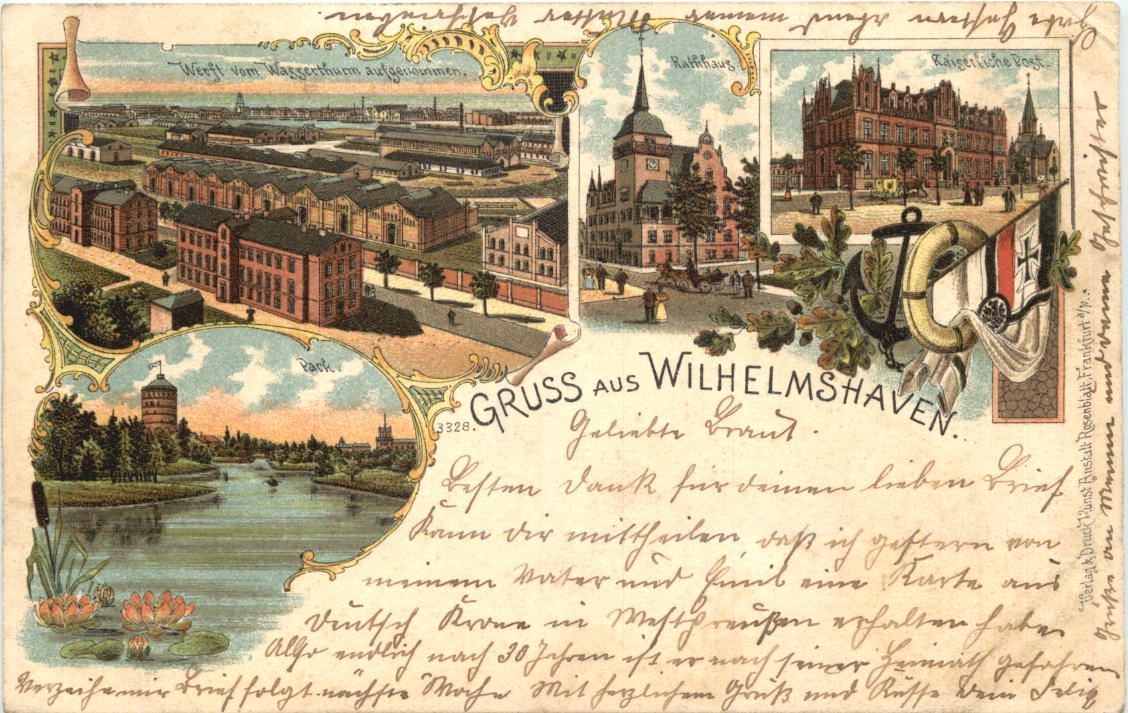 Werft vom Wasserthurm aufgenommen.
Rathhaus.
Kaiserliche Post.
Park.
3328.
GRUSS AUS WILHELMSHAVEN.
Verlag u. Druck Kunst Anstalt Rosenblatt, Frankfurt a/M.
Geliebte Braut.
Besten Dank für deinen lieben Brief
Kann dir mittheilen, daß ich gestern von
meinem Vater und Emil eine Karte aus
Deutsch Krone in Westpreußen erhalten habe
Also endlich nach 30 Jahren ist er nach seiner Heimath gefahren
Verzeihe mir Brief folgt nächste Woche Mit herzlichem Gruß und Küsse Dein Felix
Grüße an Mama und deine Geschwister